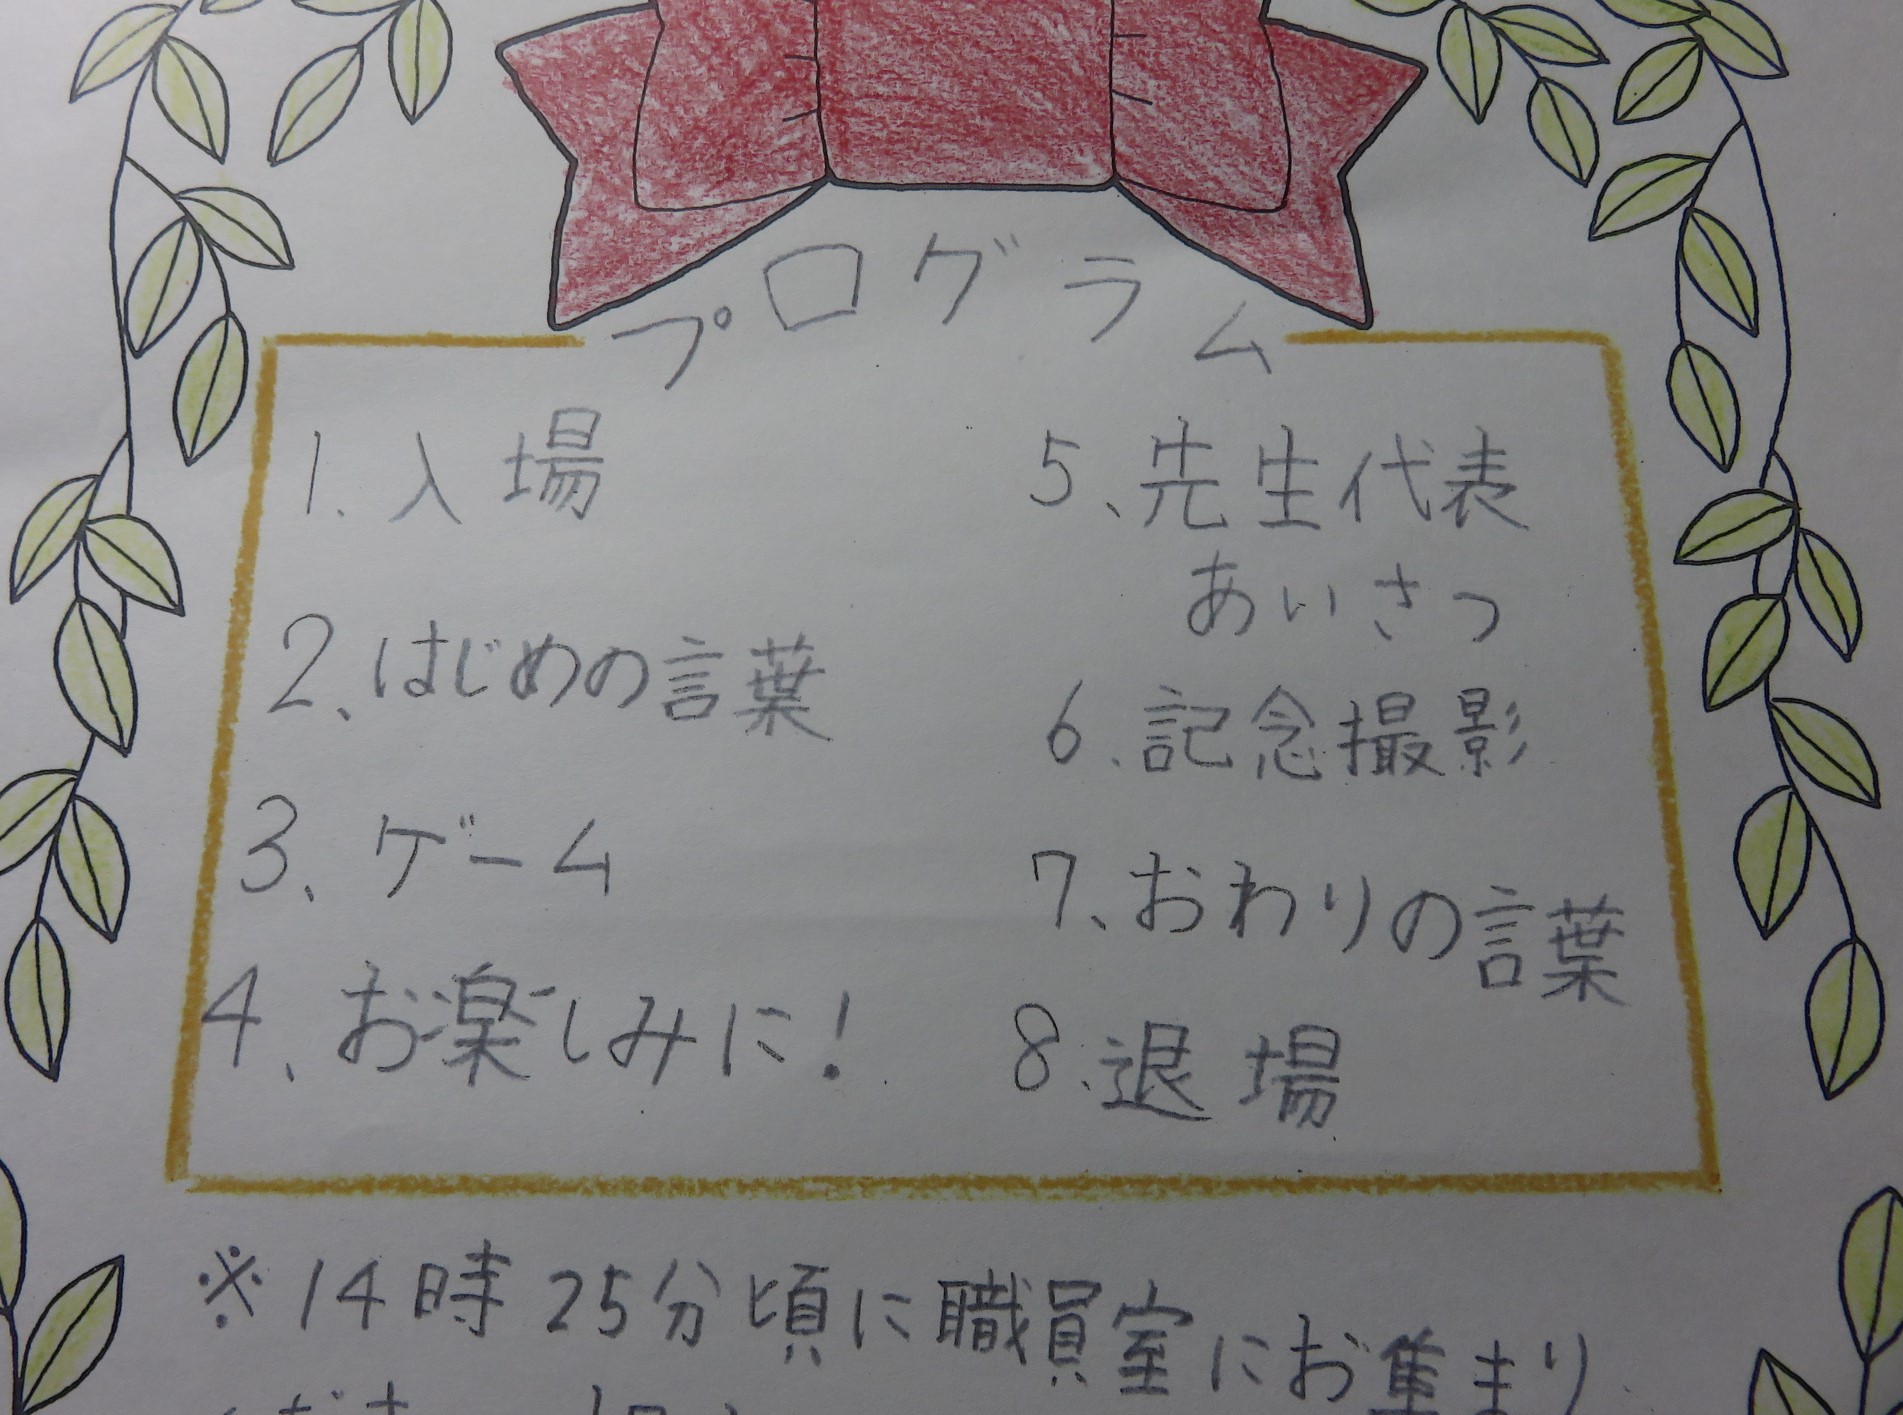 プログラム
1. 入場
2、はじめの言葉
3、ゲーム
4、お楽しみに!
5、先生代表
あいさつ
6.記念撮影
7、おわりの言葉
8.退場
※14時25分頃に職員室にお集まり